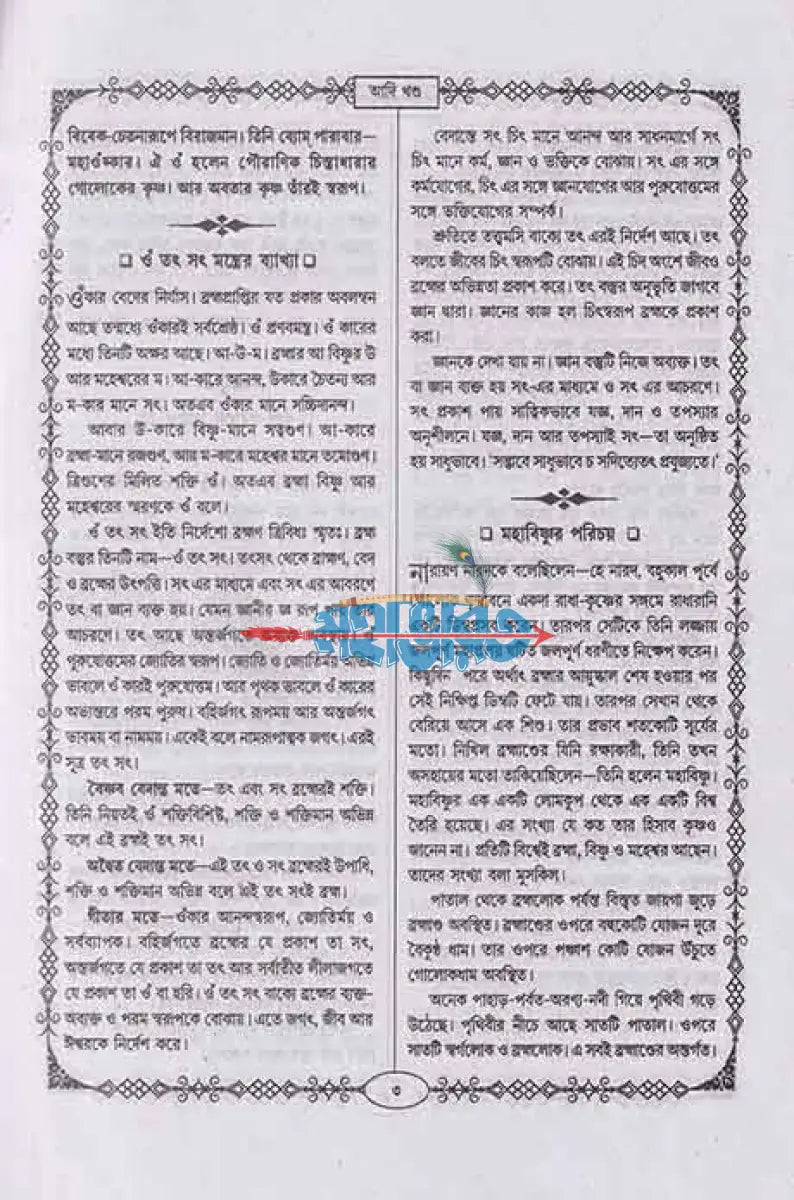 আদি খণ্ড
বিবেক-চেতনারূপে বিরাজমান। তিনি ব্যোম্ পারাবার—
মহাওঁঙ্কার। ঐ ওঁ হলেন পৌরাণিক চিন্তাধারার
গোলোকের কৃষ্ণ। আর অবতার কৃষ্ণ তাঁরই স্বরূপ।
❑ ওঁ তৎ সৎ মন্ত্রের ব্যাখ্যা ❑
ওঁকার বেদের নির্যাস। ব্রহ্মপ্রাপ্তির যত প্রকার অবলম্বন
আছে তন্মধ্যে ওঁকারই সর্বশ্রেষ্ঠ। ওঁ প্রণবমন্ত্র। ওঁ কারের
মধ্যে তিনটি অক্ষর আছে। আ-উ-ম। ব্রহ্মার আ বিষ্ণুর উ
আর মহেশ্বরের ম। আ-কারে আনন্দ, উকারে চৈতন্য আর
ম-কার মানে সৎ। অতএব ওঁকার মানে সচ্চিদানন্দ।
আবার উ-কারে বিষ্ণু-মানে সত্ত্বগুণ। আ-কারে
ব্রহ্মা-মানে রজগুণ, আর ম-কারে মহেশ্বর মানে তমোগুণ।
ত্রিগুণের মিলিত শক্তি ওঁ। অতএব ব্রহ্মা বিষ্ণু আর
মহেশ্বরের স্মরণকে ওঁ বলে।
ওঁ তৎ সৎ ইতি নির্দেশো ব্রহ্মণ ত্রিবিধঃ স্মৃতঃ। ব্রহ্ম
বস্তুর তিনটি নাম—ওঁ তৎ সৎ। তৎসৎ থেকে ব্রাহ্মণ, বেদ
ও ব্রহ্মের উৎপত্তি। সৎ এর মাধ্যমে এবং সৎ এর আবরণে
তৎ বা জ্ঞান ব্যক্ত হয়। যেমন জ্ঞানীর জ্ঞ রূপ
আচরণে। তৎ আছে অন্তর্জগতে ওঁ
পুরুষোত্তমের জ্যোতির স্বরূপ। জ্যোতি ও জ্যোতির্ময় অভিন্ন
ভাবলে ওঁ কারই পুরুষোত্তম। আর পৃথক ভাবলে ওঁ কারের
অভ্যন্তরে পরম পুরুষ। বহির্জগৎ রূপময় আর অন্তর্জগৎ
ভাবময় বা নামময়। একেই বলে নামরূপাত্মক জগৎ। এরই
সূত্র তৎ সৎ।
বৈষ্ণব বেদান্ত মতে—তৎ এবং সৎ ব্রহ্মেরই শক্তি।
তিনি নিয়তই ওঁ শক্তিবিশিষ্ট, শক্তি ও শক্তিমান অভিন্ন
বলে এই ব্রহ্মই তৎ সৎ।
অদ্বৈত বেদান্ত মতে—এই তৎ ও সৎ ব্রহ্মেরই উপাধি,
শক্তি ও শক্তিমান অভিন্ন বলে এই তৎ সৎই ব্রহ্ম।
গীতার মতে—ওঁকার আনন্দস্বরূপ, জ্যোতির্ময় ও
সর্বব্যাপক। বহির্জগতে ব্রহ্মের যে প্রকাশ তা সৎ,
অন্তর্জগতে যে প্রকাশ তা তৎ আর সর্বাতীত লীলাজগতে
যে প্রকাশ তা ওঁ বা হরি। ওঁ তৎ সৎ বাক্যে ব্রহ্মের ব্যক্ত-
অব্যক্ত ও পরম স্বরূপকে বোঝায়। এতে জগৎ, জীব আর
ঈশ্বরকে নির্দেশ করে।
বেদান্তে সৎ চিৎ মানে আনন্দ আর সাধনমার্গে সৎ
চিৎ মানে কর্ম, জ্ঞান ও ভক্তিকে বোঝায়। সৎ এর সঙ্গে
কর্মযোগের, চিৎ এর সঙ্গে জ্ঞানযোগের আর পুরুষোত্তমের
সঙ্গে ভক্তিযোগের সম্পর্ক।
শ্রুতিতে তত্ত্বমসি বাক্যে তৎ এরই নির্দেশ আছে। তৎ
বলতে জীবের চিৎ স্বরূপটি বোঝায়। এই চিদ্ অংশে জীবও
ব্রহ্মের অভিন্নতা প্রকাশ করে। তৎ বস্তুর অনুভূতি জাগবে
জ্ঞান দ্বারা। জ্ঞানের কাজ হল চিৎস্বরূপ ব্রহ্মকে প্রকাশ
করা।
জ্ঞানকে দেখা যায় না। জ্ঞান বস্তুটি নিজে অব্যক্ত। তৎ
বা জ্ঞান ব্যক্ত হয় সৎ-এর মাধ্যমে ও সৎ এর আচরণে।
সৎ প্রকাশ পায় সাত্বিকভাবে যজ্ঞ, দান ও তপস্যার
অনুশীলনে। যজ্ঞ, দান আর তপস্যাই সৎ—তা অনুষ্ঠিত
হয় সাধুভাবে। ‘সদ্ভাবে সাধুভাবে চ সদিত্যেতৎ প্রযুজ্যতে।’
❑ মহাবিষ্ণুর পরিচয় ❑
নারায়ণ নারদকে বলেছিলেন—হে নারদ, বহুকাল পূর্বে
একদা রাধা-কৃষ্ণের সঙ্গমে রাধারানি
একটি ডিম্বপ্রসব করেন। তারপর সেটিকে তিনি লজ্জায়
জলপূর্ণ ধরণীতে নিক্ষেপ করেন।
কিছুদিন পরে অর্থাৎ ব্রহ্মার আয়ুষ্কাল শেষ হওয়ার পর
সেই নিক্ষিপ্ত ডিম্বটি ফেটে যায়। তারপর সেখান থেকে
বেরিয়ে আসে এক শিশু। তার প্রভাব শতকোটি সূর্যের
মতো। নিখিল ব্রহ্মাণ্ডের যিনি রক্ষাকারী, তিনি তখন
অসহায়ের মতো তাকিয়েছিলেন—তিনি হলেন মহাবিষ্ণু।
মহাবিষ্ণুর এক একটি লোমকূপ থেকে এক একটি বিশ্ব
তৈরি হয়েছে। এর সংখ্যা যে কত তার হিসাব কৃষ্ণও
জানেন না। প্রতিটি বিশ্বেই ব্রহ্মা, বিষ্ণু ও মহেশ্বর আছেন।
তাদের সংখ্যা বলা মুসকিল।
পাতাল থেকে ব্রহ্মলোক পর্যন্ত বিস্তৃত জায়গা জুড়ে
ব্রহ্মাণ্ড অবস্থিত। ব্রহ্মাণ্ডের ওপরে বহুকোটি যোজন দূরে
বৈকুণ্ঠ ধাম। তার ওপরে পঞ্চাশ কোটি যোজন উঁচুতে
গোলোকধাম অবস্থিত।
অনেক পাহাড়-পর্বত-অরণ্য-নদী গিয়ে পৃথিবী গড়ে
উঠেছে। পৃথিবীর নীচে আছে সাতটি পাতাল। ওপরে
সাতটি স্বর্গলোক ও ব্রহ্মলোক। এ সবই ব্রহ্মাণ্ডের অন্তর্গত।
৩